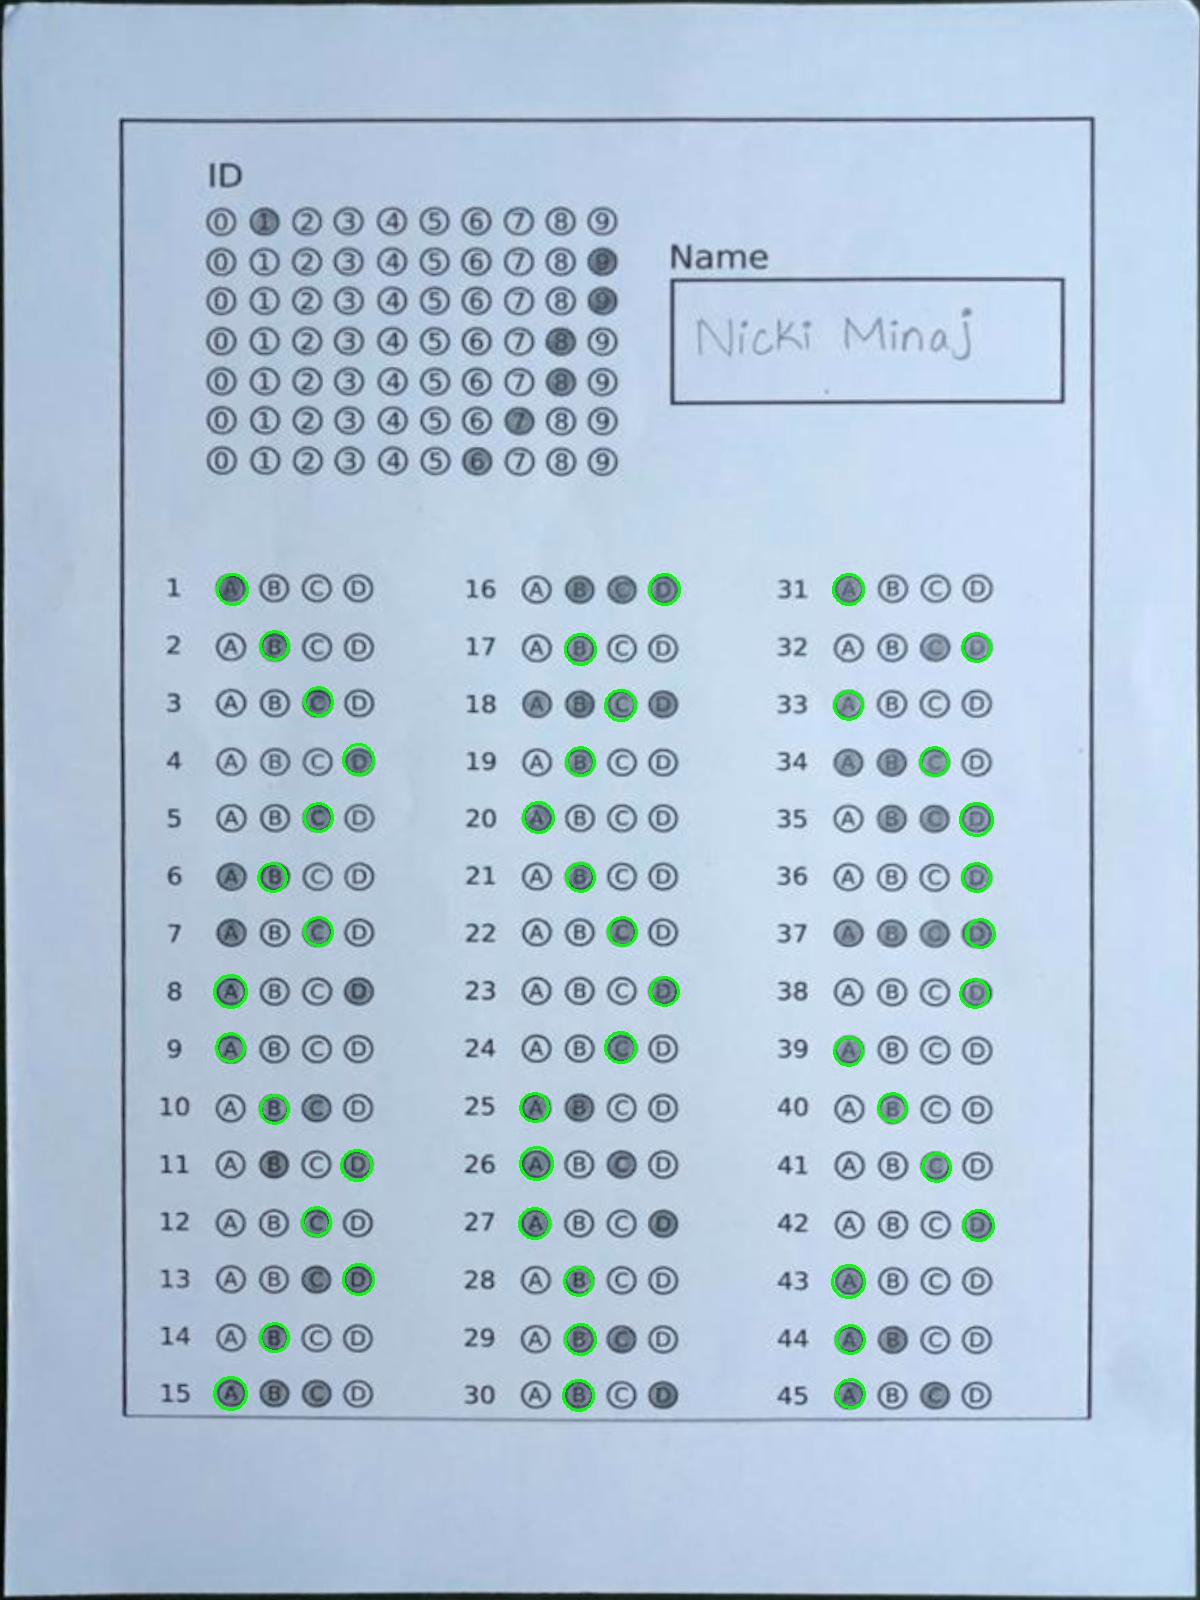 ID
0 1 2 3 4 5 6 7 8 9
0 1 2 3 4 5 6 7 8 9
0 1 2 3 4 5 6 7 8 9
0 1 2 3 4 5 6 7 8 9
0 1 2 3 4 5 6 7 8 9
0 1 2 3 4 5 6 7 8 9
0 1 2 3 4 5 6 7 8 9
Name
Nicki Minaj
1 A B C D
2 A B C D
3 A B C D
4 A B C D
5 A B C D
6 A B C D
7 A B C D
8 A B C D
9 A B C D
10 A B C D
11 A B C D
12 A B C D
13 A B C D
14 A B C D
15 A B C D
16 A B C D
17 A B C D
18 A B C D
19 A B C D
20 A B C D
21 A B C D
22 A B C D
23 A B C D
24 A B C D
25 A B C D
26 A B C D
27 A B C D
28 A B C D
29 A B C D
30 A B C D
31 A B C D
32 A B C D
33 A B C D
34 A B C D
35 A B C D
36 A B C D
37 A B C D
38 A B C D
39 A B C D
40 A B C D
41 A B C D
42 A B C D
43 A B C D
44 A B C D
45 A B C D